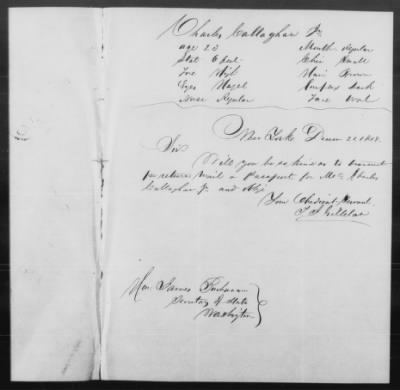 Charles Callaghan Jr.
age 23 Mouth Regular
Stat 6 feet Chin Small
Fore High Hair Brown
Eyes Hazel Complex Dark
Nose Regular Face Oval
New York
Sir
Will you be so kind as to transmit
per return mail a Passport for Mr. Charles
Callaghan Jr. and oblige
Your Obedient Servant
Hon. James Buchanan
Secretary of State
Washington